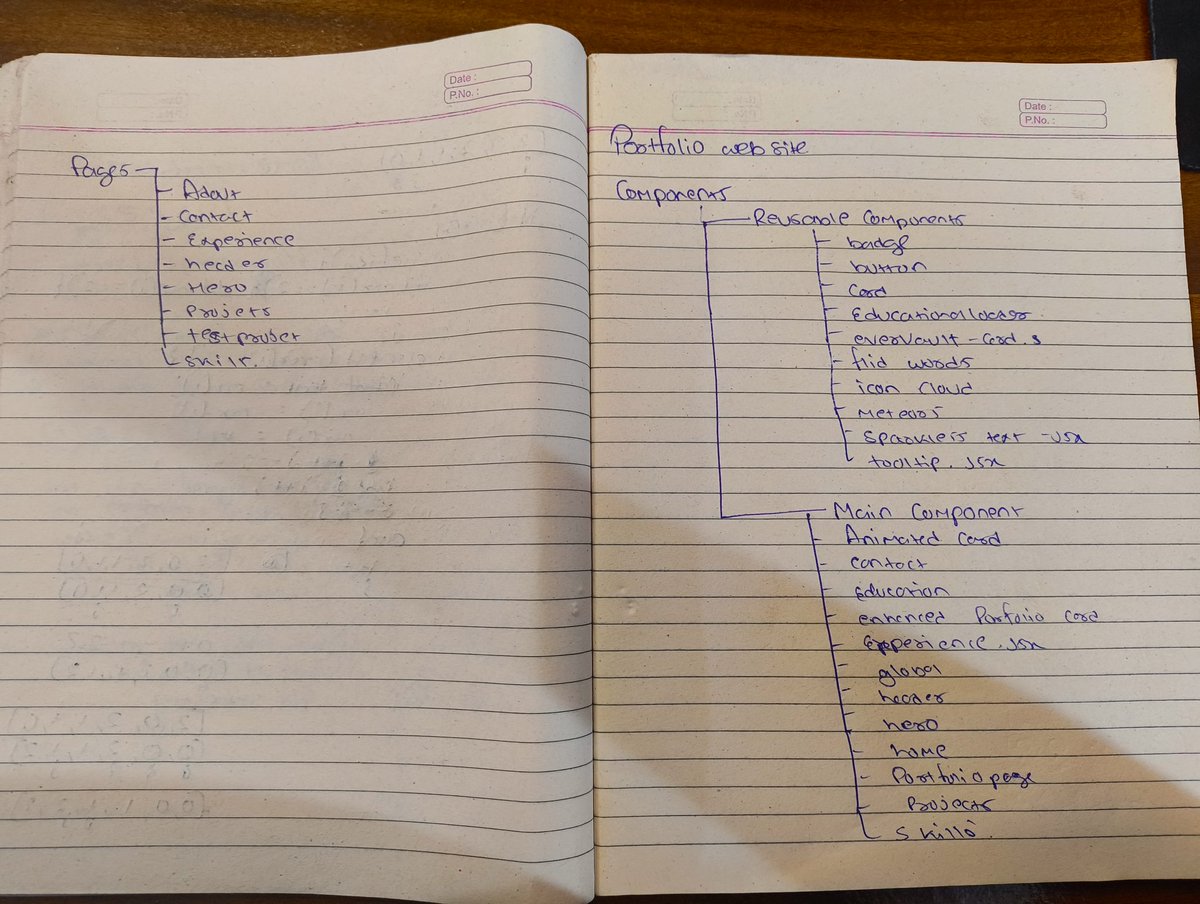 Date :
P.No. :
Pages
- About
- Contact
- Experience
- header
- Hero
- Projets
- skills.
Date :
P.No. :
Portfolio web site
Components
Reusable Components
- badge
- button
- Card
- evervault - Card.s
words
- icon Cloud
- Meteors
- Sparkless text -Jsx
tooltip. Jsx
Main Component
- Animated Card
- contact
- Education
- enhanced Porfolio Card
- Experience.Jsx
- global
- header
- hero
- home
- Portfolio page
- Projects
skills